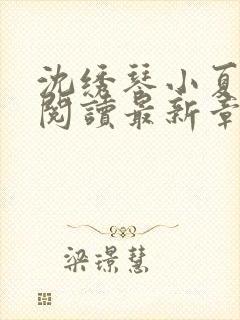 沈绣琴小夏
阅读最新章
梁璟慧